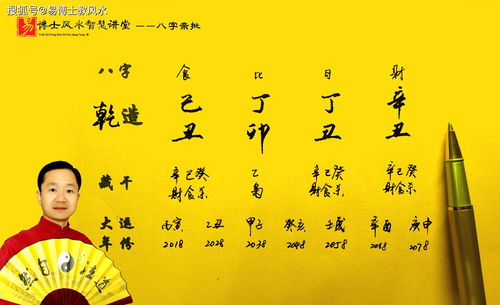 搜狐号@易博士教风水
易 博士风水智慧讲堂 ——八字亲批
八字 食 比 日 财
乾造 己 丁 丁 辛
丑 卯 丑 丑
藏干 辛己癸 乙 辛己癸 辛己癸
财食杀 枭 财食杀 财食杀
大运 丙寅 乙丑 甲子 癸亥 壬戌 辛酉 庚申
年份 2018 2028 2038 2048 2058 2068 2078
然自法道